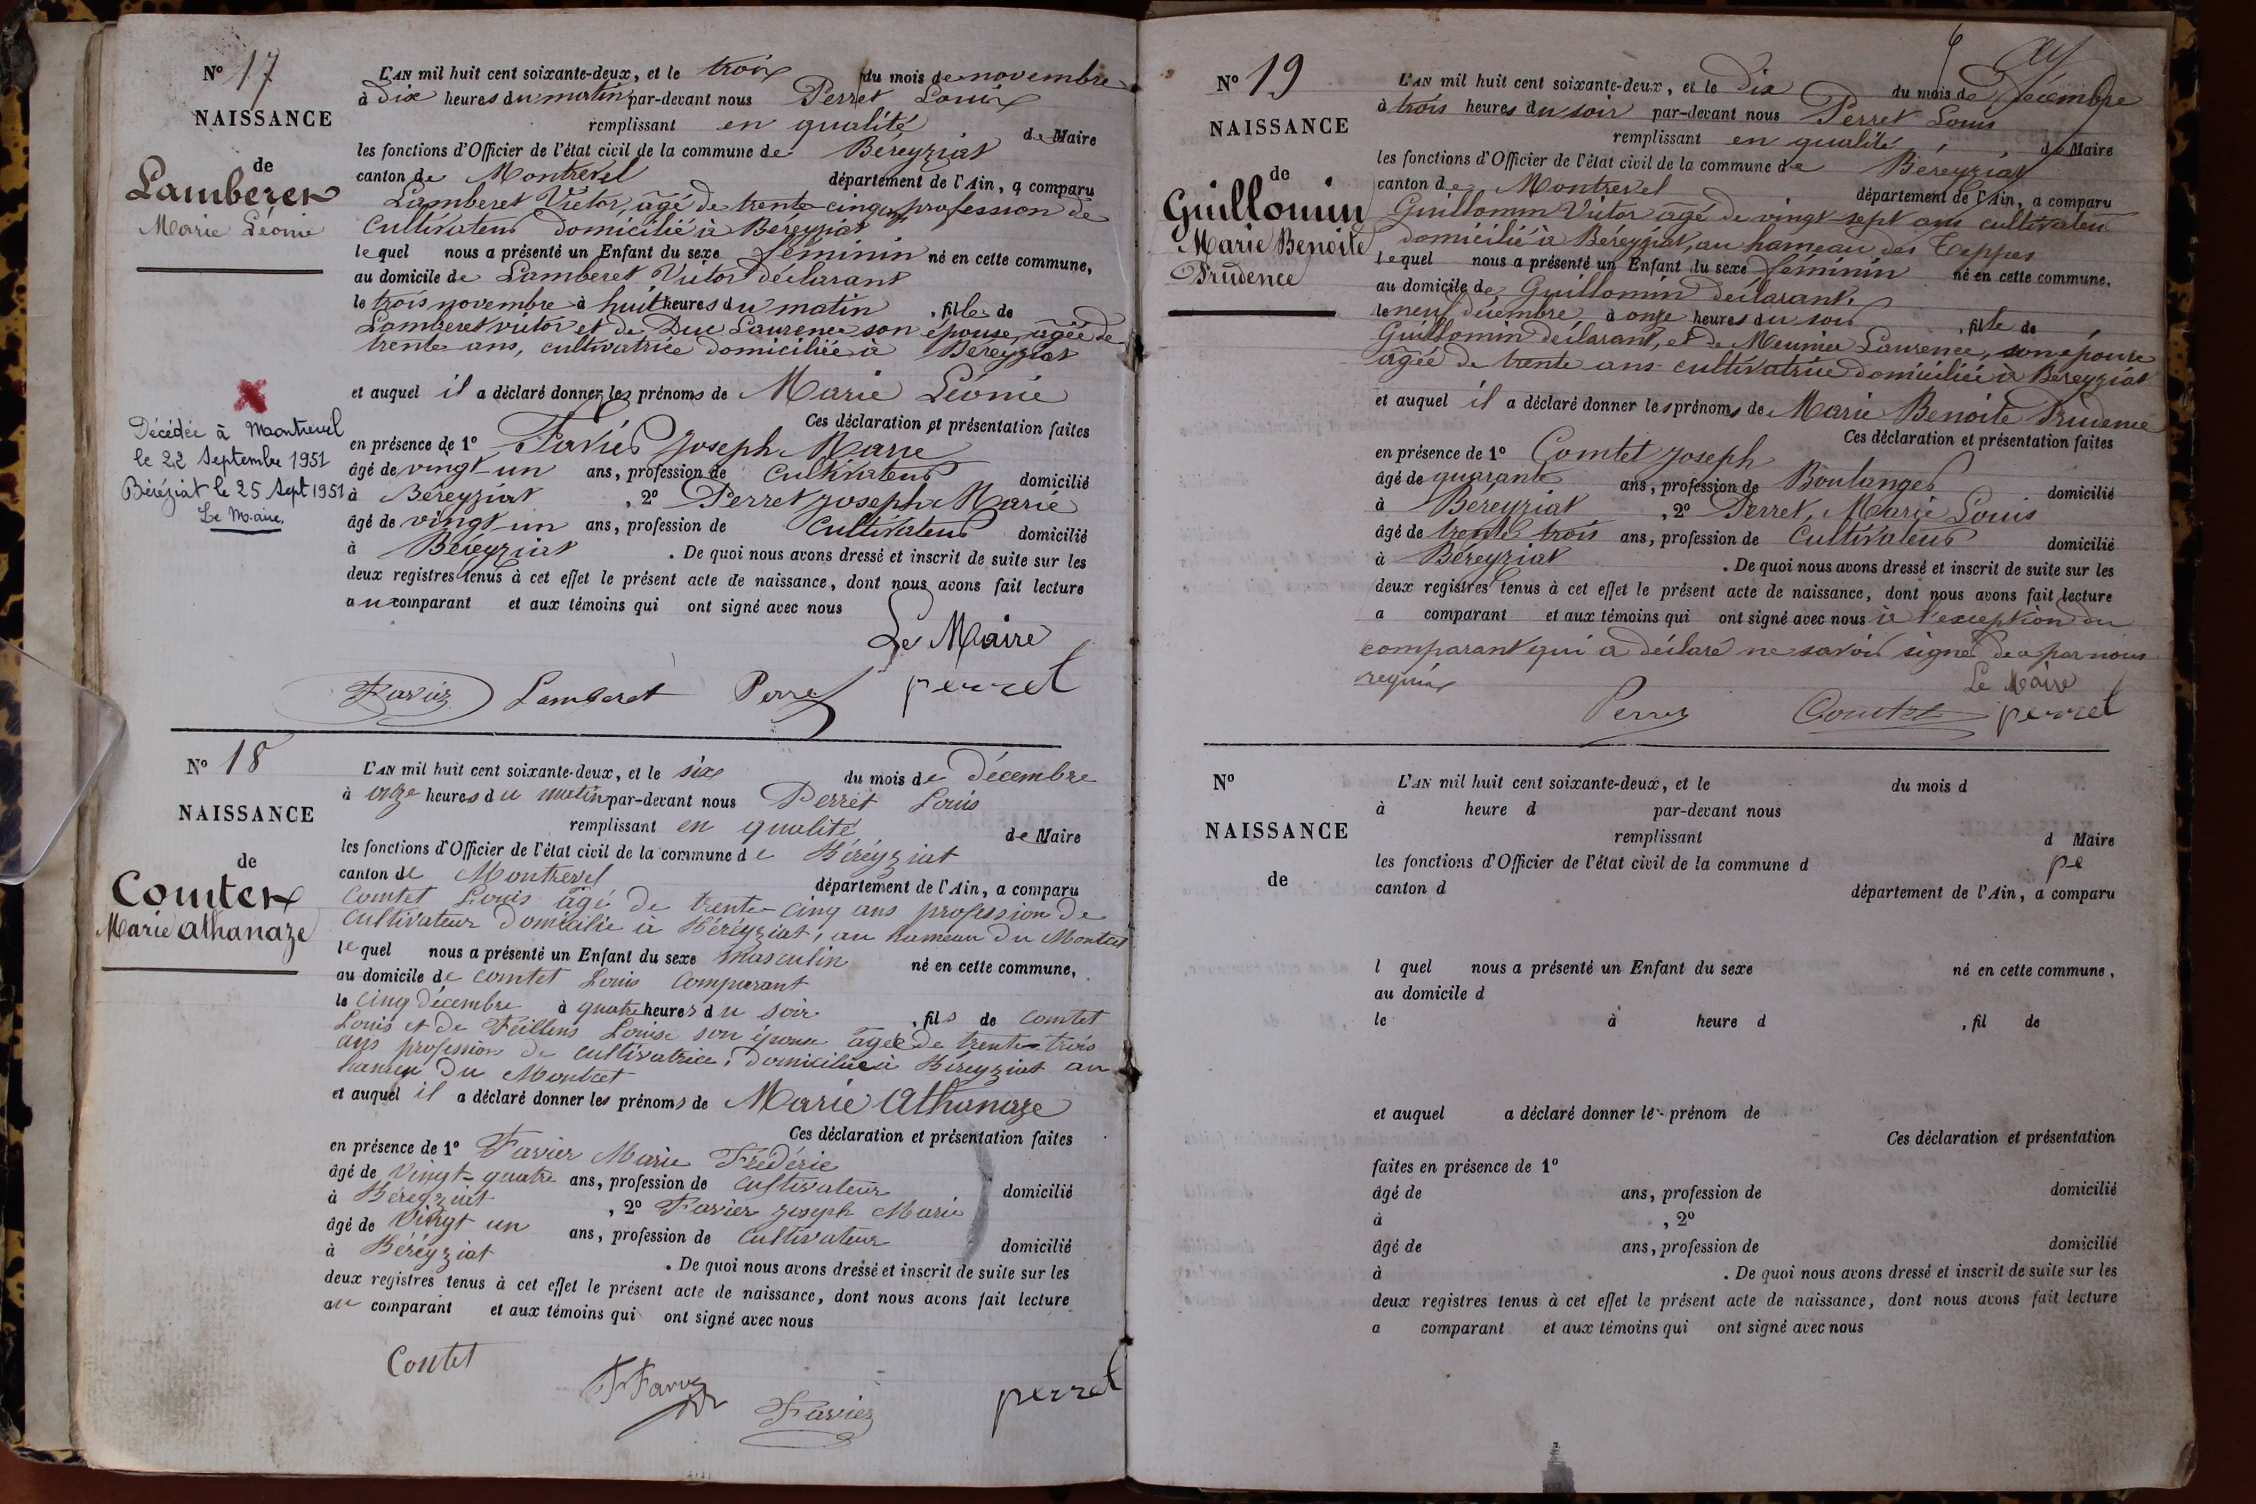 N° 17
NAISSANCE
de
Lamberet
Marie Léonie
Décédée à Montrevel
le 22 Septembre 1951
Béréziat le 25 Sept 1951
Le Maire,
L'AN mil huit cent soixante-deux, et le trois du mois de novembre
à Dix heures du matin par-devant nous Perret Louis
remplissant en qualité de Maire
les fonctions d'Officier de l'état civil de la commune de Béreyziat
canton de Montrevel département de l'Ain, a comparu
Lamberet Victor, âgé de trente-cinq ans, profession de
Cultivateur domicilié à Béreyziat
lequel nous a présenté un Enfant du sexe féminin né en cette commune,
au domicile de Lamberet Victor déclarant
le trois novembre à huit heures du matin , fille de
Lamberet victor et de Duc Laurence son épouse, âgée de
trente ans, cultivatrice domiciliée à Béreyziat
et auquel il a déclaré donner les prénoms de Marie Léonie
Ces déclaration et présentation faites
en présence de 1° Favier Joseph Marie
âgé de vingt un ans, profession de Cultivateur domicilié
à Béreyziat , 2° Perret Joseph Marie
âgé de vingt un ans, profession de Cultivateur domicilié
à Béreyziat . De quoi nous avons dressé et inscrit de suite sur les
deux registres tenus à cet effet le présent acte de naissance, dont nous avons fait lecture
au comparant et aux témoins qui ont signé avec nous
Le Maire
Favier Lamberet Perret perret
N° 18
NAISSANCE
de
Comtet
Marie Athanaze
L'AN mil huit cent soixante-deux, et le six du mois de décembre
à onze heures du matin par-devant nous Perret Louis
remplissant en qualité de Maire
les fonctions d'Officier de l'état civil de la commune de Béréyziat
canton de Montrevel département de l'Ain, a comparu
Comtet Louis âgé de trente-cinq ans profession de
cultivateur domicilié à Béréyziat, au hameau du Montcet
lequel nous a présenté un Enfant du sexe masculin né en cette commune,
au domicile de comtet Louis comparant
le cinq décembre à quatre heures du soir , fils de comtet
Louis et de Feillens Louise son épouse âgée de trente-trois
ans profession de cultivatrice, domiciliée à Béreyziat au
hameu du Montcet
et auquel il a déclaré donner les prénoms de Marie Athanaze
Ces déclaration et présentation faites
en présence de 1° Favier Marie Frédéric
âgé de vingt-quatre ans, profession de cultivateur domicilié
à Béreyziat , 2° Favier Joseph Marie
âgé de vingt un ans, profession de cultivateur domicilié
à Béréyziat . De quoi nous avons dressé et inscrit de suite sur les
deux registres tenus à cet effet le présent acte de naissance, dont nous avons fait lecture
au comparant et aux témoins qui ont signé avec nous
Contet
Favier perret
N° 19
NAISSANCE
de
Guillomin
Marie Benoite
Prudence
L'AN mil huit cent soixante-deux, et le Dix du mois de Décembre
à trois heures du soir par-devant nous Perret Louis
remplissant en qualité de Maire
les fonctions d'Officier de l'état civil de la commune de Béreyziat
canton de Montrevel département de l'Ain, a comparu
Guillomin Victor âgé de vingt sept ans cultivateur
domicilié à Béreyziat, au hameau des Teppes
lequel nous a présenté un Enfant du sexe féminin né en cette commune,
au domicile de Guillomin déclarant,
le neuf décembre à onze heures du soir , fille de
Guillomin déclarant, et de Meunier Laurence, son épouse
âgée de trente ans cultivatrice domiciliée à Béreyziat
et auquel il a déclaré donner les prénoms de Marie Benoite Prudence
Ces déclaration et présentation faites
en présence de 1° Comtet Joseph
âgé de quarante ans, profession de Boulanger domicilié
à Béreyziat , 2° Perret, Marie Louis
âgé de trente trois ans, profession de Cultivateur domicilié
à Béreyziat . De quoi nous avons dressé et inscrit de suite sur les
deux registres tenus à cet effet le présent acte de naissance, dont nous avons fait lecture
a comparant et aux témoins qui ont signé avec nous à l'exception du
comparant qui a déclaré ne savoir signer de a par nous
requis
Le Maire
Perret Comtet perret
N°
NAISSANCE
de
L'AN mil huit cent soixante-deux, et le du mois d
à heure d par-devant nous
remplissant d Maire
les fonctions d'Officier de l'état civil de la commune d pe
canton d département de l'Ain, a comparu
l quel nous a présenté un Enfant du sexe né en cette commune,
au domicile d
le à heure d , fil de
et auquel a déclaré donner le prénom de
Ces déclaration et présentation
faites en présence de 1°
âgé de ans, profession de domicilié
à , 2°
âgé de ans, profession de domicilié
à . De quoi nous avons dressé et inscrit de suite sur les
deux registres tenus à cet effet le présent acte de naissance, dont nous avons fait lecture
a comparant et aux témoins qui ont signé avec nous